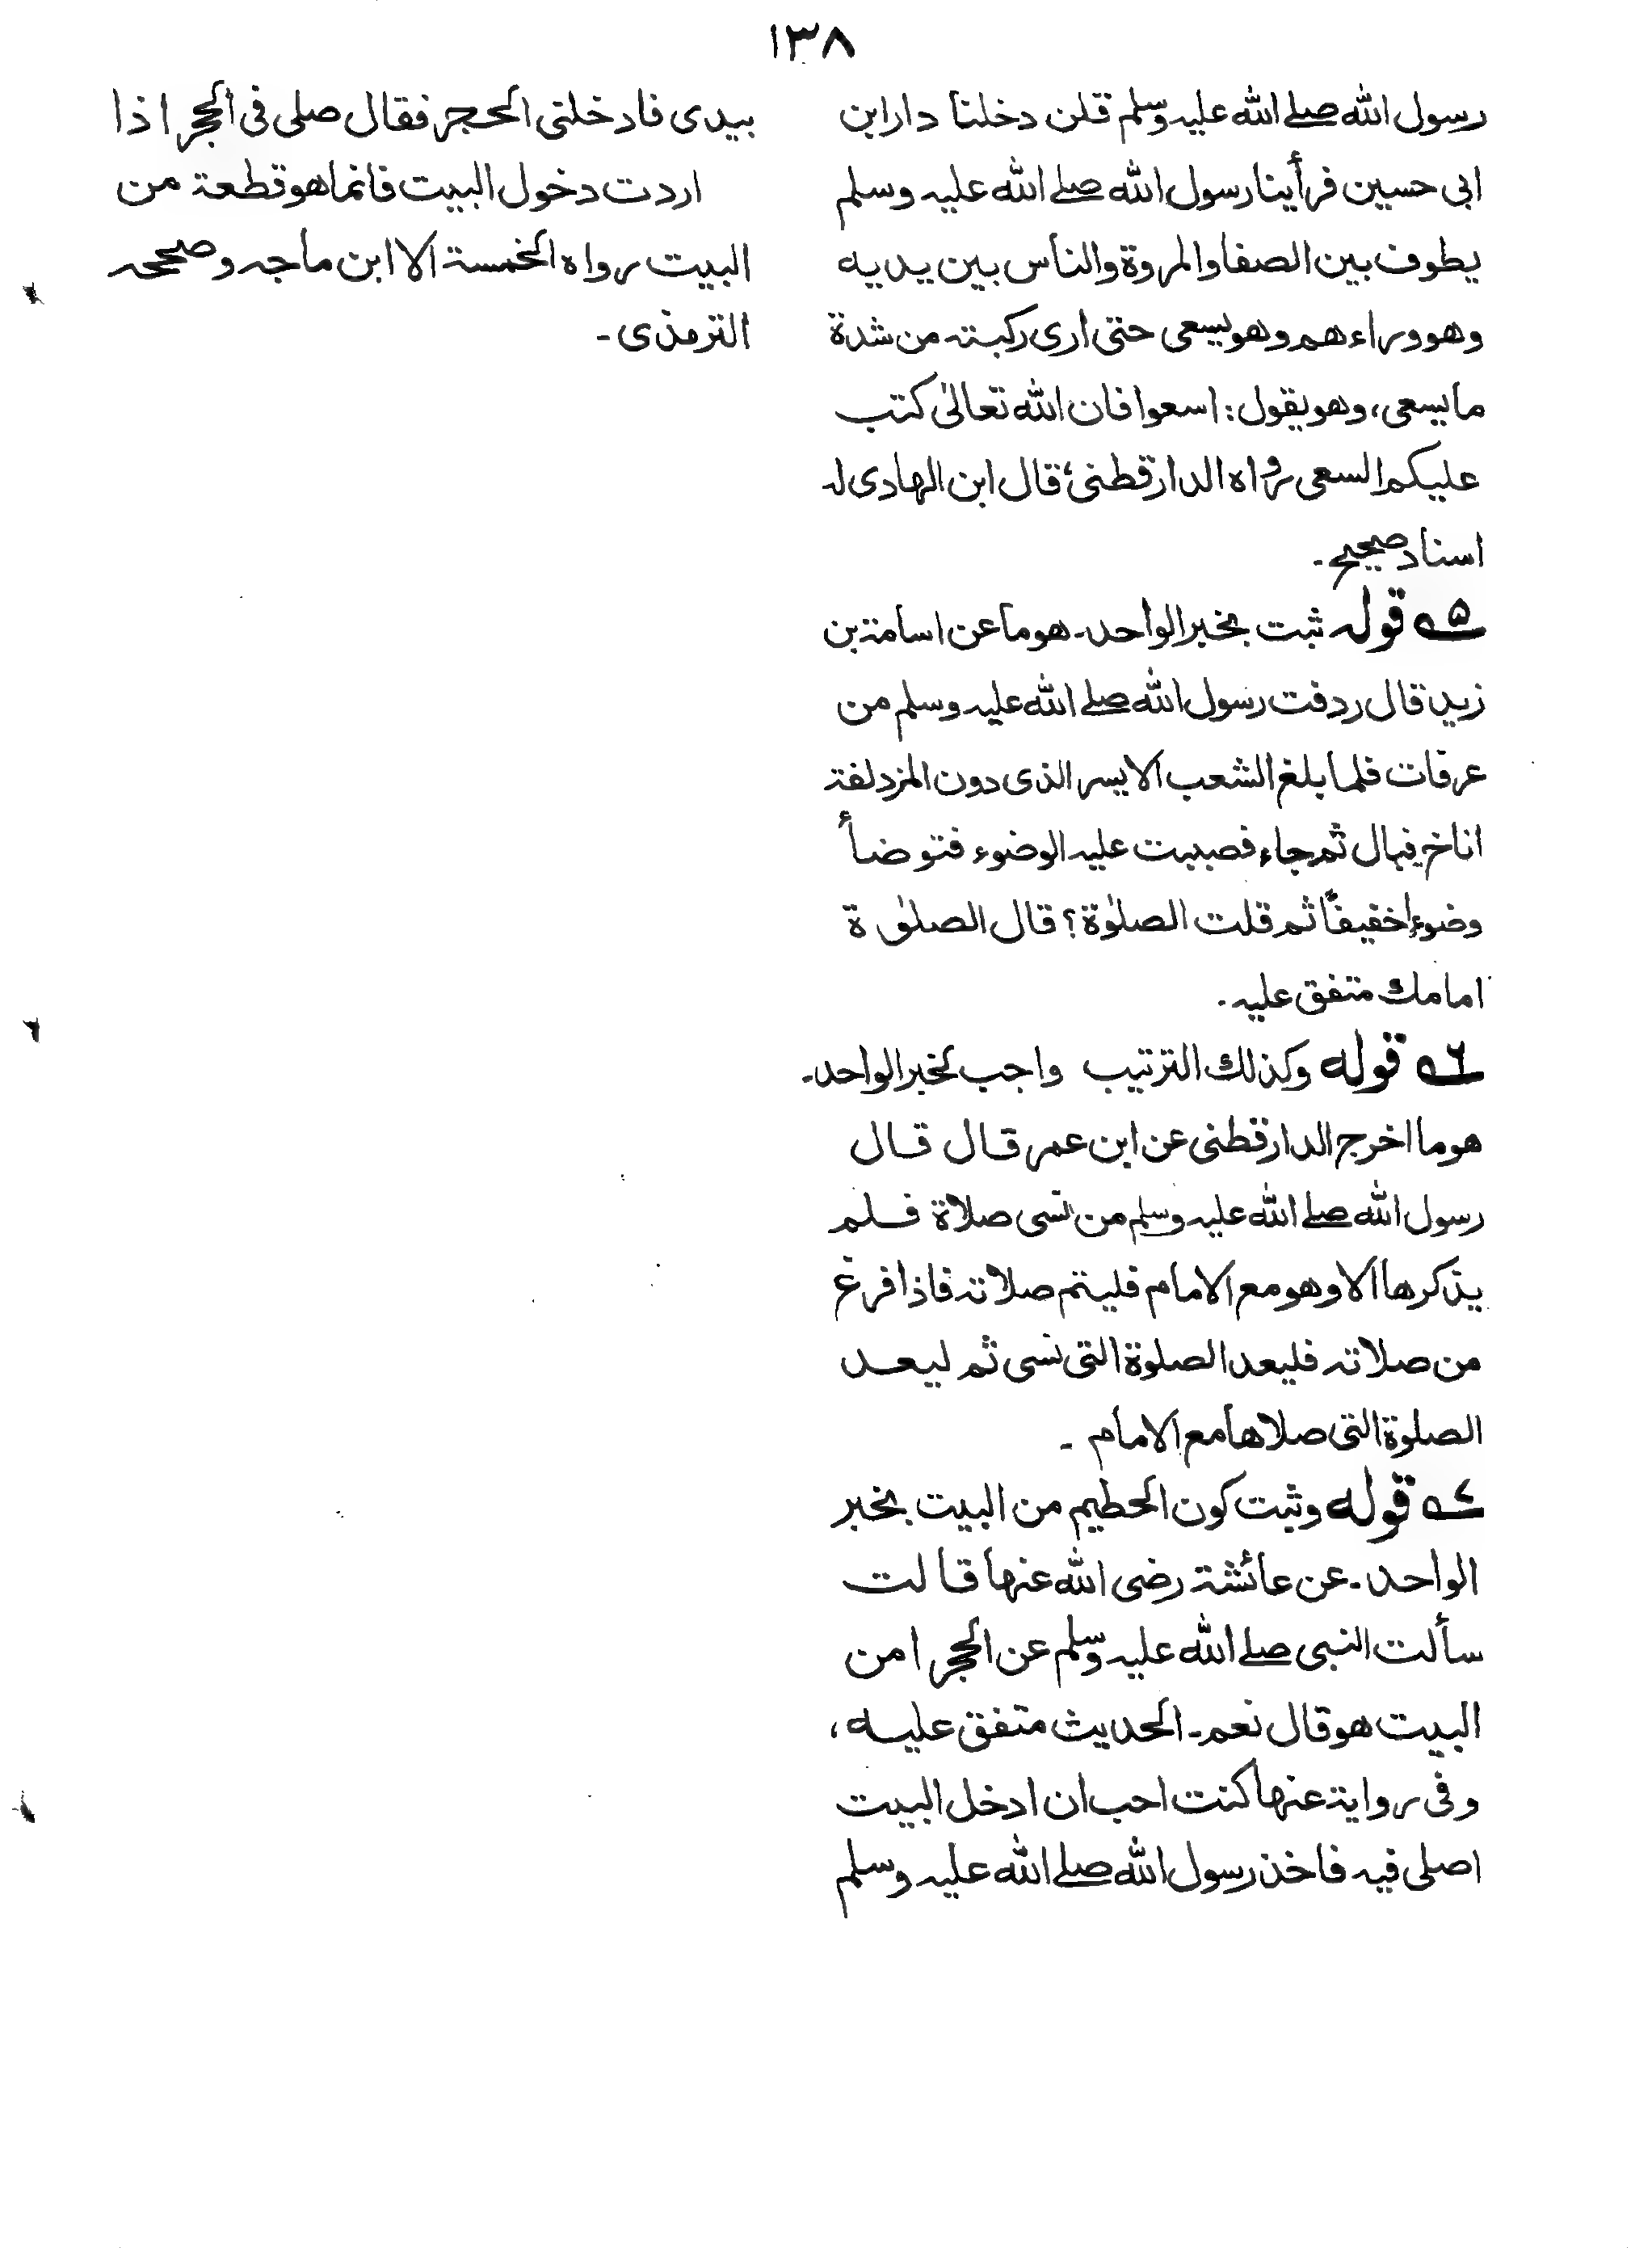 ١٣٨
رسول الله صلے الله عليه وسلم قلن دخلنا دار ابن
ابی حسین فرأینا رسول الله صلے الله علیه وسلم
یطوف بین الصفا والمروة والناس بین یدیه
وهو وراءهم وهو یسعی حتی اری رکبته من شدة
ما یسعی، وهو یقول: اسعوا فان الله تعالیٰ کتب
علیکم السعی رواه الدارقطنی، قال ابن الهادی له
اسناد صحیح۔
۵ قوله ثبت بخبر الواحد۔ هو ما عن اسامة بن
زید قال ردفت رسول الله صلے الله علیه وسلم من
عرفات فلما بلغ الشعب الایسر الذی دون المزدلفة
اناخ فبال ثم جاء فصببت علیه الوضوء فتوضأ
وضوءا خفیفًا ثم قلت الصلوٰة؟ قال الصلوٰة
امامك متفق علیه۔
۶ قوله وکذلك الترتیب واجب بخبر الواحد۔
هو ما اخرج الدارقطنی عن ابن عمر قال قال
رسول الله صلے الله علیه وسلم من نسی صلاة فلم
یذکرها الا وهو مع الامام فلیتم صلاته فاذا فرغ
من صلاته فلیعد الصلوة التی نسی ثم لیعد
الصلوة التی صلاها مع الامام ۔
۷ قوله وثبت کون الحطیم من البیت بخبر
الواحد۔ عن عائشة رضی الله عنها قالت
سألت النبی صلے الله علیه وسلم عن الحجر امن
البیت هو قال نعم۔ الحدیث متفق علیه،
وفی روایة عنها کنت احب ان ادخل البیت
اصلی فیه فاخذ رسول الله صلے الله علیه وسلم
بیدی فادخلنی الحجر فقال صلی فی الحجر اذا
اردت دخول البیت فانما هو قطعة من
البیت رواه الخمسة الا ابن ماجه وصححه
الترمذی۔